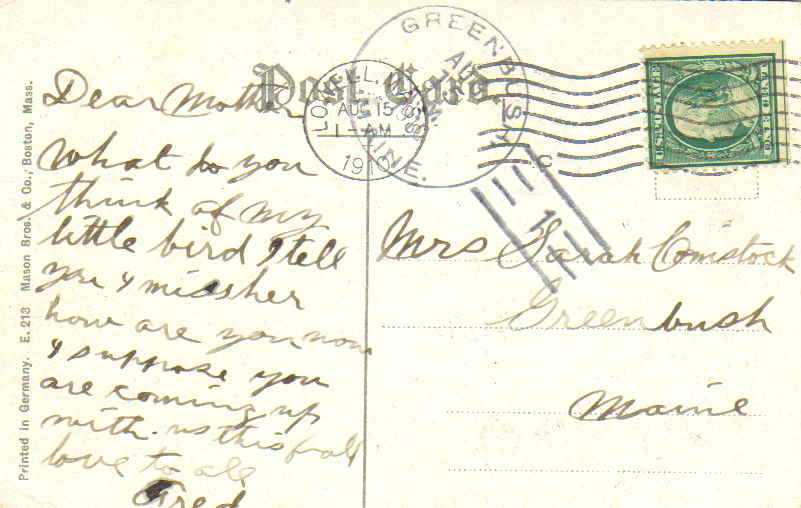 Post Card.
Dear Mother
What do you
think of my
little bird I tell
you I miss her
how are you now
I suppose you
are coming up
with us this fall
love to all
Fred
Mrs Sarah Comstock
Greenbush
Maine
LOWELL, MASS.
AUG 15
1-AM
1910
GREENBUSH
AUG
MAINE.
1
C
U.S. POSTAGE
ONE CENT
Printed in Germany. E. 213 Mason Bros. & Co., Boston, Mass.